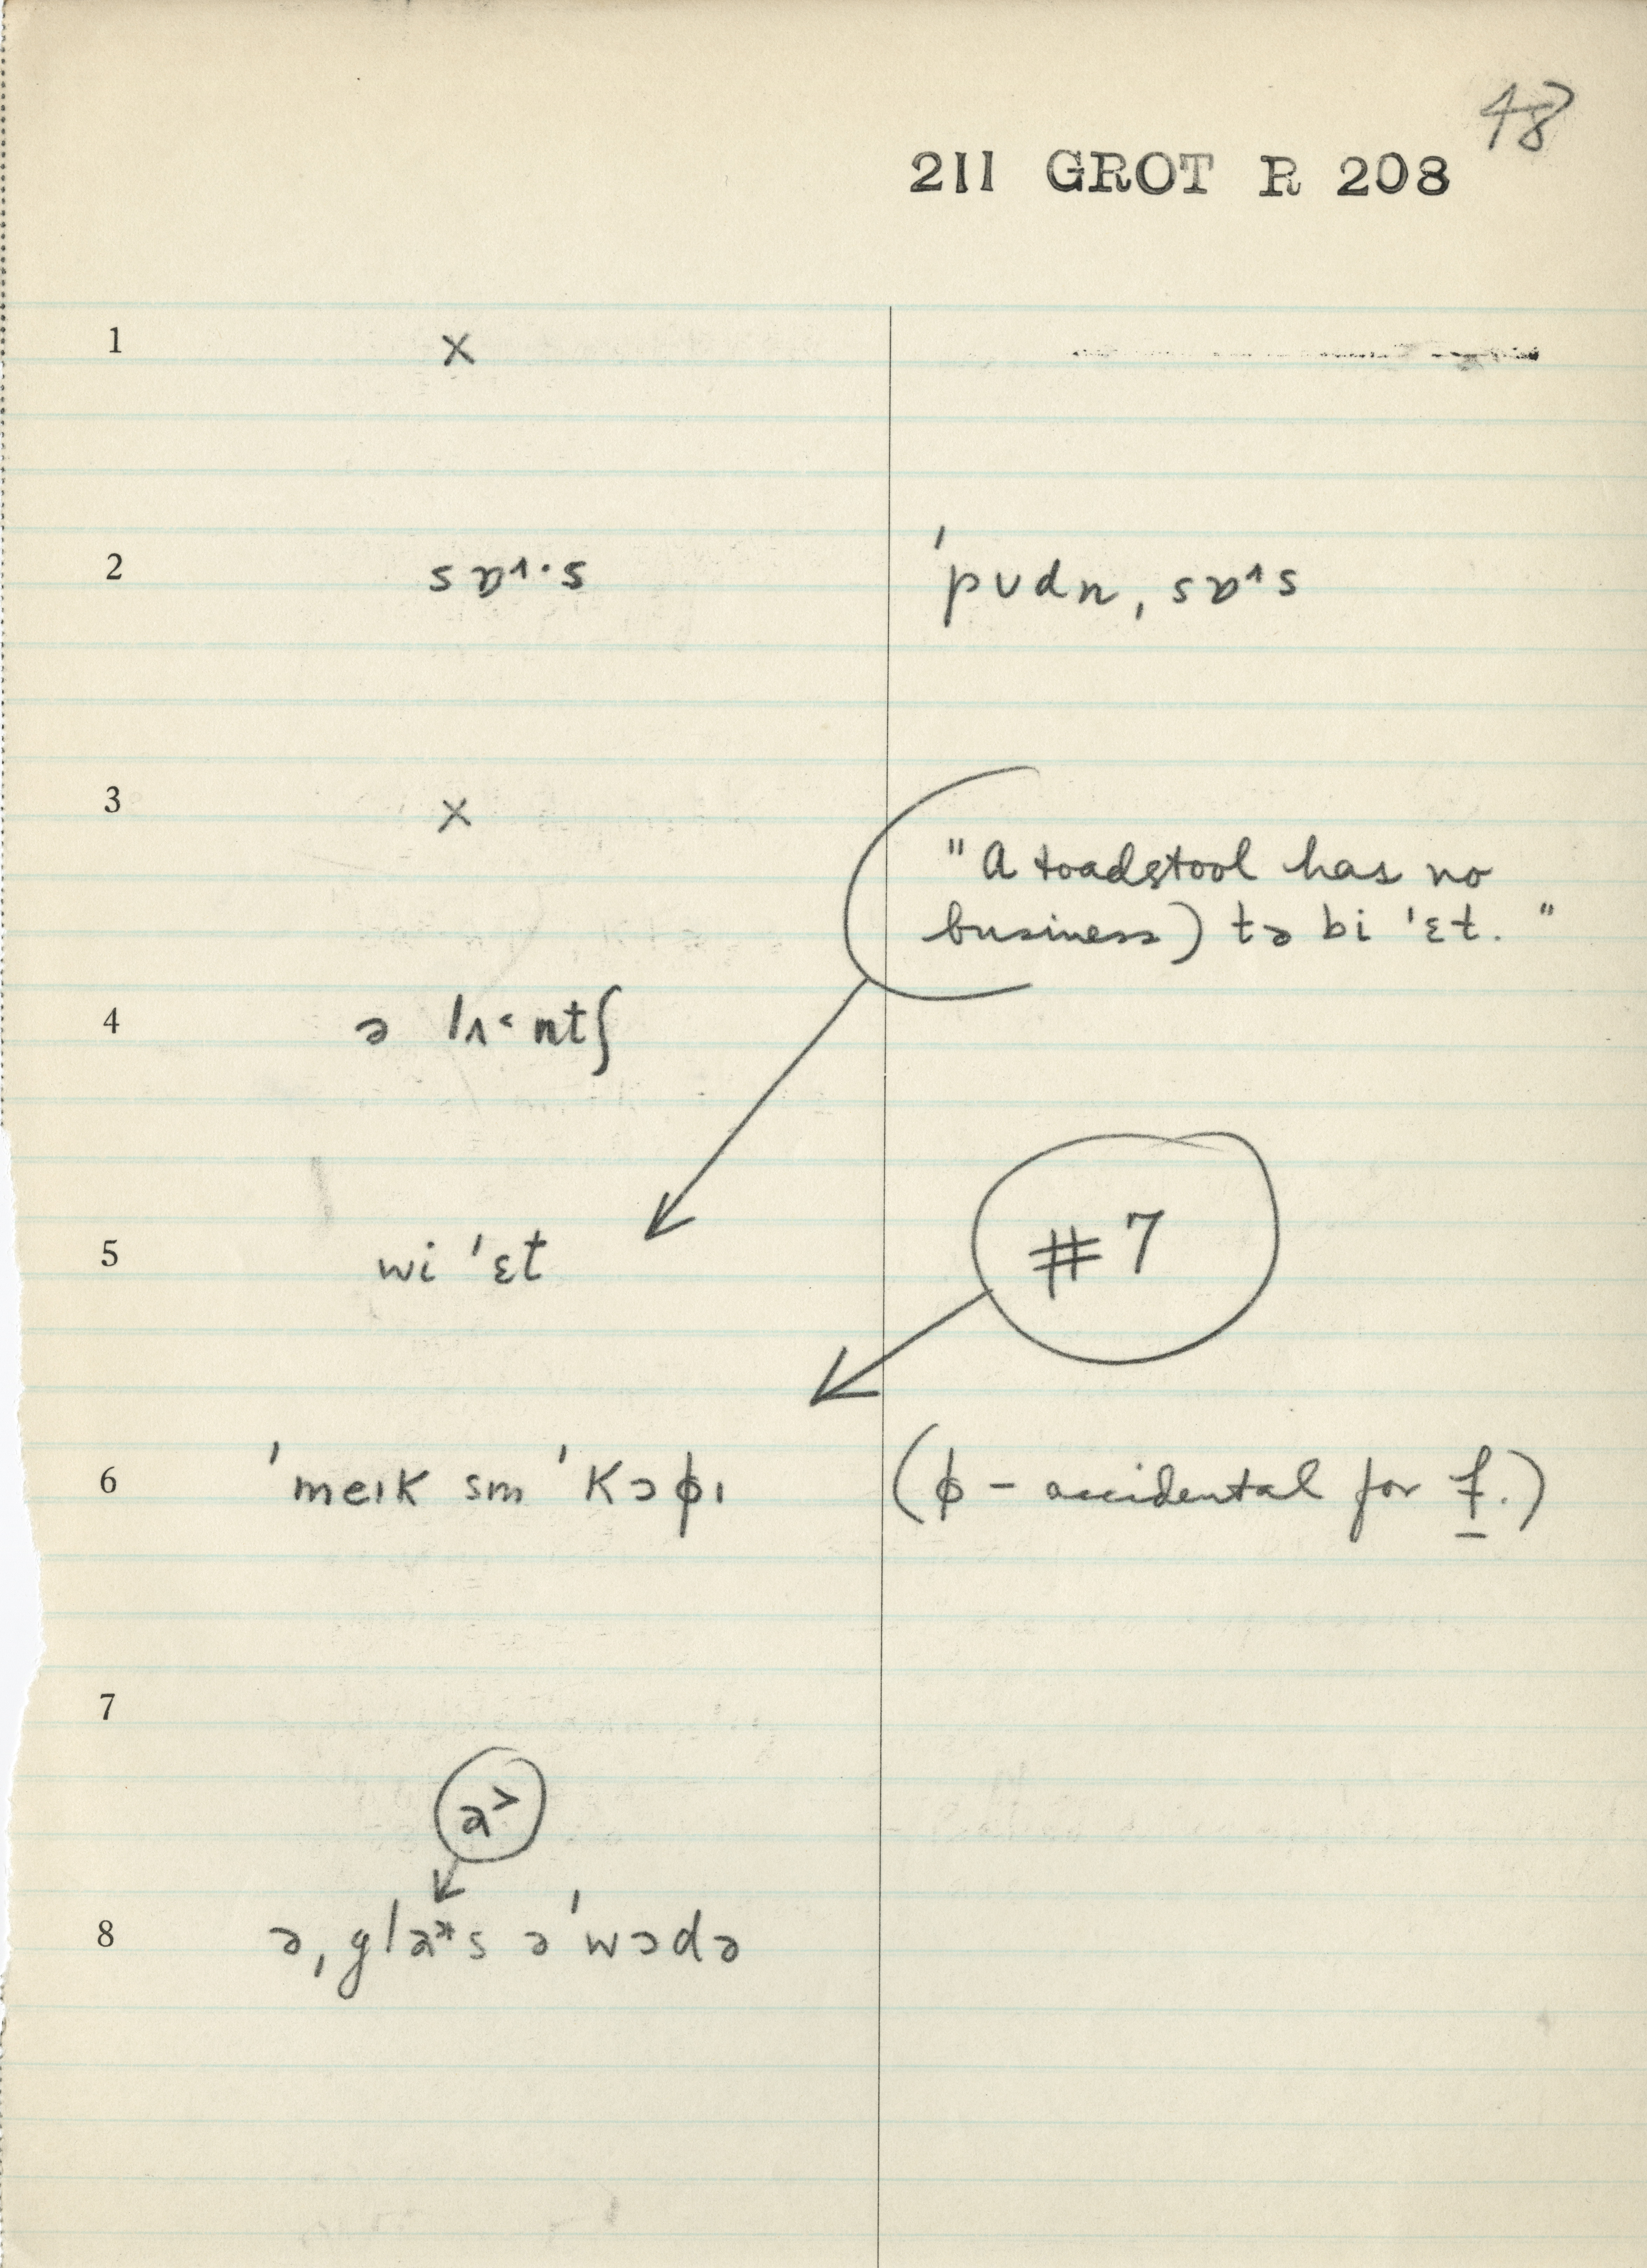 48
211 GROT R 208
1 ×
2 sɒ˄·s ˈpʊdn̩, sɒ˄s
3 ×
"A toadstool has no
business) tə bi 'ɛt."
4 ə lʌ˂ntʃ
5 wi 'ɛt
#7
6 ˈmeɪk sm ˈkɔɸɪ (ɸ - accidental for f.)
7
a˃
8 ə ˌglas əˈwɔdə